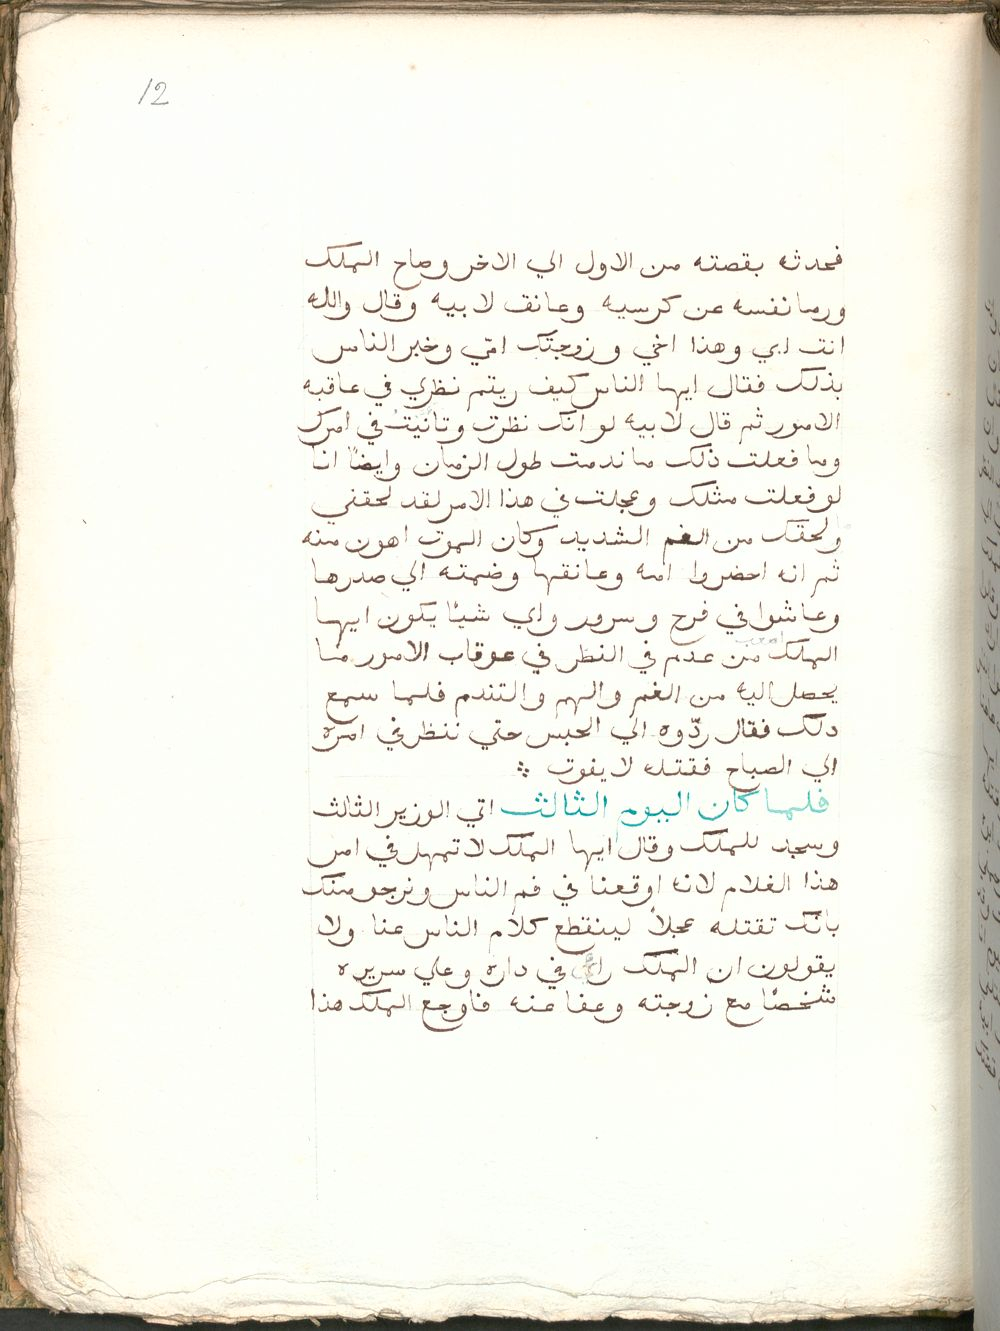 12
فحدثه بقصته من الاول الي الاخر وصاح الملك
ورما نفسه عن كرسيه وعانق لابيه وقال والله
انت ابي وهذا اخي وزوجتك امّي وخبر الناس
بذلك فقال ايها الناس كيف ريتم نظري في عاقبه
الامور ثم قال لابيه لو انك نظرت وتانيت في امرك
وما فعلت ذلك ما ندمت طول الزمان وايضًا انا
لو فعلت مثلك وعجلت في هذا الامر لقد لحقني
ولحقك من الغم الشديد وكان الموت اهون منه
ثم انه احضروا امه وعانقها وضمته الي صدرها
وعاشوا في فرح وسرور واي شيًا يكون ايها
الملك اصعب من عدم في النظر في عوقاب الامور مما
يحصل اليه من الغم والهم والتندم فلما سمع
دلك فقال ردّوه الي الحبس حتي ننظر في امره
الي الصباح فقتله لا يفوت
فلما كان اليوم الثالث اتي الوزير الثالث
وسجد للملك وقال ايها الملك لا تمهد في امر
هذا الغلام لانه اوقعنا في فم الناس ونرجو منك
بانك تقتله عجلاً لينقطع كلام الناس عنا ولا
يقولون ان الملك راي في داره وعلي سريره
شخصًا مع زوجته وعفا عنه فاوجع الملك هذا